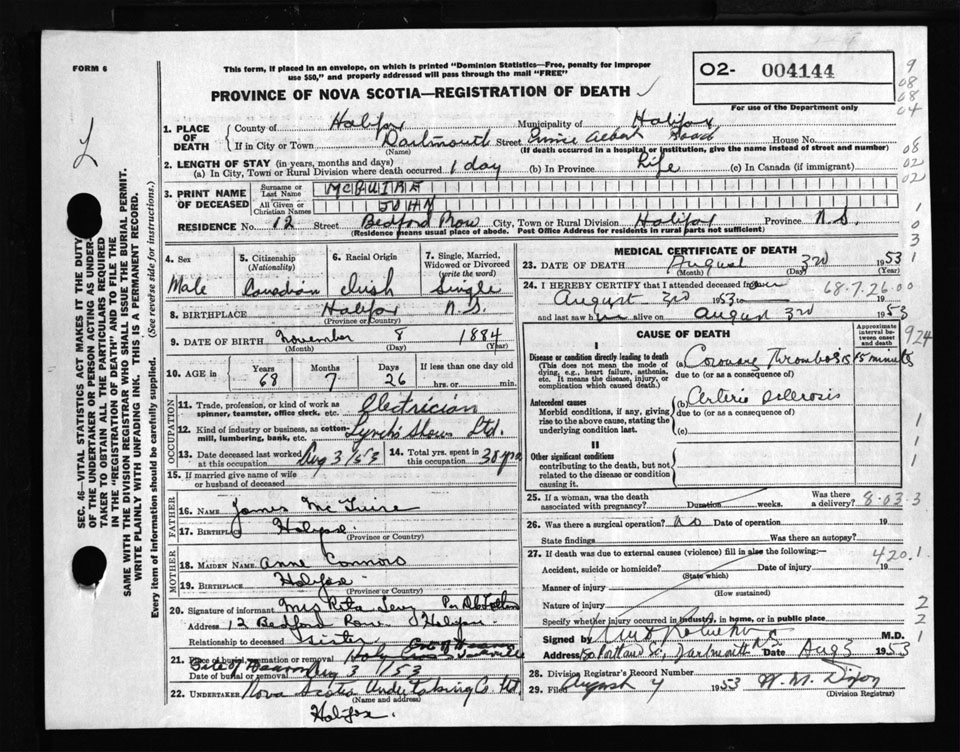 FORM 6
This form, if placed in an envelope, on which is printed "Dominion Statistics—Free, penalty for improper
use $50," and properly addressed will pass through the mail "FREE"
02- 004144
For use of the Department only
PROVINCE OF NOVA SCOTIA—REGISTRATION OF DEATH
9
08
08
04
08
02
02
1
0
3
1
SEC. 46—VITAL STATISTICS ACT MAKES IT THE DUTY
OF THE UNDERTAKER OR PERSON ACTING AS UNDER-
TAKER TO OBTAIN ALL THE PARTICULARS REQUIRED
IN THE "REGISTRATION OF DEATH" AND TO FILE THE
SAME WITH THE DIVISION REGISTRAR WHO SHALL ISSUE THE BURIAL PERMIT.
WRITE PLAINLY WITH UNFADING INK. THIS IS A PERMANENT RECORD.
Every item of information should be carefully supplied. (See reverse side for instructions.)
1. PLACE OF DEATH
County of Halifax Municipality of Halifax
If in City or Town Dartmouth Street Prince Albert Road House No.
(Name) (If death occurred in a hospital or institution, give the name instead of street and number)
2. LENGTH OF STAY (in years, months and days)
(a) In City, Town or Rural Division where death occurred 1 day (b) In Province Life (c) In Canada (if immigrant)
3. PRINT NAME OF DECEASED
Surname or Last Name McGUIRE
All Given or Christian Names JOHN
RESIDENCE No. 12 Street Bedford Row City, Town or Rural Division Halifax Province N.S.
(Residence means usual place of abode. Post Office Address for residents in rural parts not sufficient)
4. Sex Male
5. Citizenship (Nationality) Canadian
6. Racial Origin Irish
7. Single, Married, Widowed or Divorced (write the word) Single
8. BIRTHPLACE Halifax N.S.
(Province or Country)
9. DATE OF BIRTH November 8 1884
(Month) (Day) (Year)
10. AGE in Years Months Days If less than one day old
68 7 26 hrs. or min.
OCCUPATION
11. Trade, profession, or kind of work as spinner, teamster, office clerk, etc. Electrician
12. Kind of industry or business, as cotton-mill, lumbering, bank, etc. Lynch's Shows Ltd.
13. Date deceased last worked at this occupation Aug 3/53
14. Total yrs. spent in this occupation 30 yrs.
15. If married give name of wife or husband of deceased
FATHER
16. NAME James McGuire
17. BIRTHPLACE Halifax
(Province or Country)
MOTHER
18. MAIDEN NAME Anne Connors
19. BIRTHPLACE Halifax
(Province or Country)
20. Signature of informant Mrs Rita Levy Per
Address 12 Bedford Row Halifax
Relationship to deceased sister
21. Place of burial, cremation or removal Holy Cross
Date of burial or removal Aug 3/53
22. UNDERTAKER Nova Scotia Undertaking Co. Ltd.
(Name and address)
Halifax.
MEDICAL CERTIFICATE OF DEATH
23. DATE OF DEATH August 3rd 1953
(Month) (Day) (Year)
24. I HEREBY CERTIFY that I attended deceased from 68-7-26-00
August 3rd 1953 to 19
and last saw him alive on August 3rd 1953
CAUSE OF DEATH
Approximate interval between onset and death
924
I
Disease or condition directly leading to death
(This does not mean the mode of dying, e.g., heart failure, asthenia, etc. It means the disease, injury, or complication which caused death.)
(a) Coronary Thrombosis 15 minutes
due to (or as a consequence of)
Antecedent causes
Morbid conditions, if any, giving rise to the above cause, stating the underlying condition last.
(b) Arterio sclerosis
due to (or as a consequence of)
(c)
II
Other significant conditions
contributing to the death, but not related to the disease or condition causing it.
1
1
1
1
25. If a woman, was the death associated with pregnancy? Duration weeks. Was there a delivery? 8-03-3
26. Was there a surgical operation? no Date of operation 19
State findings Was there an autopsy?
27. If death was due to external causes (violence) fill in also the following:
420.1
Accident, suicide or homicide? Date of injury 19
(State which)
Manner of injury
(How sustained)
Nature of injury
Specify whether injury occurred in industry, in home, or in public place
2
2
1
Signed by M.D.
Address 50 Portland St., Dartmouth N.S. Date Aug 3 1953
28. Division Registrar's Record Number
29. Filed August 4 1953 W. M. Dixon
(Division Registrar)